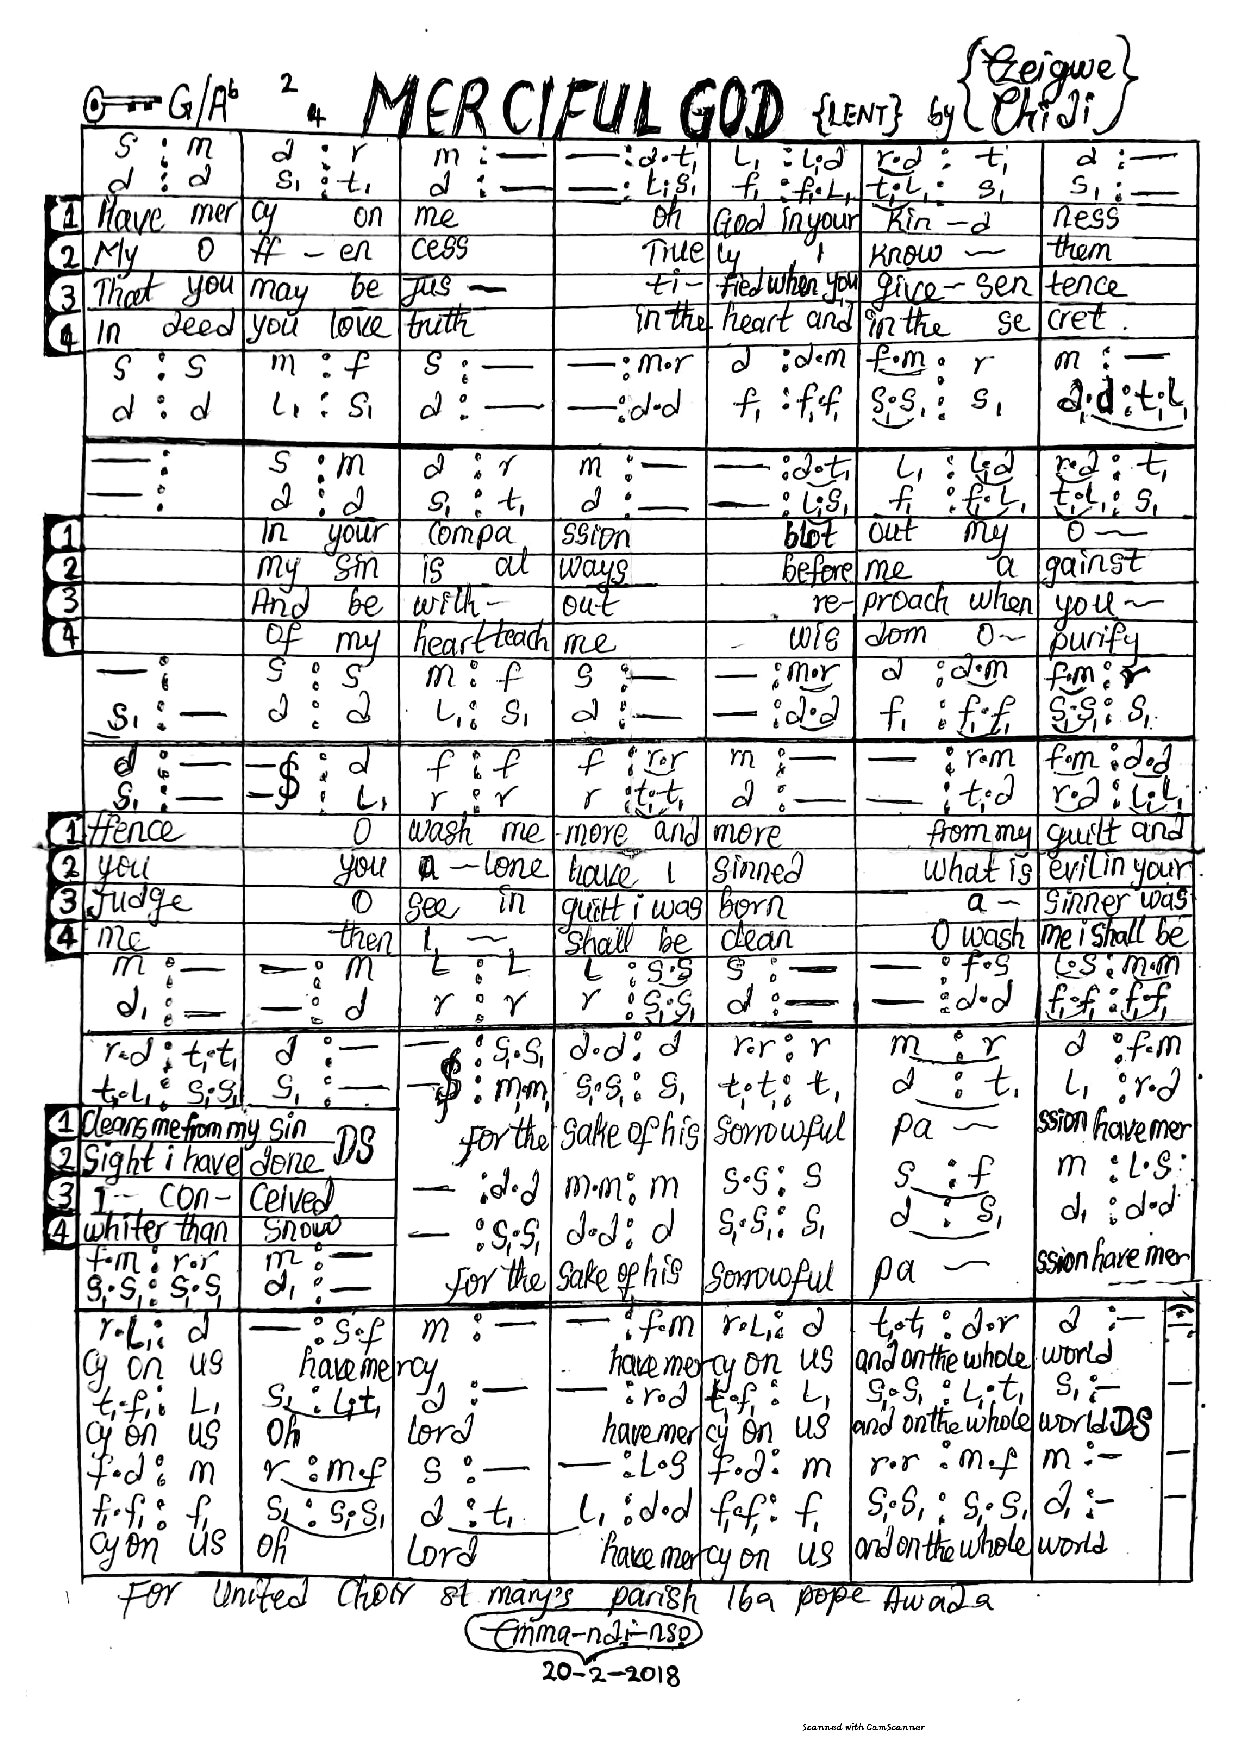 G/Ab 2 4 MERCIFUL GOD {LENT} by {Ezeigwe Chidi}
s : m d : r m : — — : d.t₁ l₁ : l₁.d r.d : t₁ d : —
d : d s₁ : t₁ d : — — : l₁.s₁ f₁ : f₁.l₁ t₁.l₁ : s₁ s₁ : —
1 Have mer cy on me oh God in your kin – d ness
2 My O ff – en cess True ly I know — them
3 That you may be jus — ti – fied when you give – sen tence
4 In deed you love truth in the heart and in the se cret.
s : s m : f s : — — : m.r d : d.m f.m : r m : —
d : d l₁ : s₁ d : — — : d.d f₁ : f₁.f₁ s₁.s₁ : s₁ d.d : t₁.l₁
— : s : m d : r m : — — : d.t₁ l₁ : l₁.d r.d : t₁
— : d : d s₁ : t₁ d : — — : l₁.s₁ f₁ : f₁.l₁ t₁.l₁ : s₁
1 In your compa ssion blot out my O —
2 my sin is al ways before me a gainst
3 And be with – out re – proach when you —
4 Of my heart teach me wis dom O — purify
— : s : s m : f s : — — : m.r d : d.m f.m : r
s₁ : — d : d l₁ : s₁ d : — — : d.d f₁ : f₁.f₁ s₁.s₁ : s₁
d : — — $ : d f : f f : r.r m : — — : r.m f.m : d.d
s₁ : — — $ : l₁ r : r r : t₁.t₁ d : — — : t₁.d r.d : l₁.l₁
1 ffence O wash me more and more from my guilt and
2 you you a – lone have I sinned what is evil in your
3 Judge O see in guilt i was born a – sinner was
4 me then I — shall be clean O wash me i shall be
m : — — : m l : l l : s.s s : — — : f.s l.s : m.m
d₁ : — — : d r : r r : s₁.s₁ d : — — : d.d f₁.f₁ : f₁.f₁
r.d : t₁.t₁ d : — — $ : s₁.s₁ d.d : d r.r : r m : r d : f.m
t₁.l₁ : s₁.s₁ s₁ : — — $ : m₁.m₁ s₁.s₁ : s₁ t₁.t₁ : t₁ d : t₁ l₁ : r.d
1 cleans me from my sin DS For the sake of his sorrowful pa — ssion have mer
2 Sight i have done
— : d.d m.m : m s.s : s s : f m : l.s
3 I — con – ceived
— : s₁.s₁ d.d : d s₁.s₁ : s₁ d : s₁ d₁ : d.d
4 whiter than snow
f.m : r.r m : — For the sake of his sorrowful pa — ssion have mer
s₁.s₁ : s₁.s₁ d₁ : —
r.l₁ : d — : s.f m : — — : f.m r.l₁ : d t₁.t₁ : d.r d : —
cy on us have mercy have mercy on us and on the whole world
t₁.f₁ : l₁ s₁ : l₁.t₁ d : — — : r.d t₁.f₁ : l₁ s₁.s₁ : l₁.t₁ s₁ : —
cy on us Oh lord have mercy on us and on the whole world DS
f.d : m r : m.f s : — — : l.s f.d : m r.r : m.f m : —
f₁.f₁ : f₁ s₁ : s₁.s₁ d : t₁ l₁ : d.d f₁.f₁ : f₁ s₁.s₁ : s₁.s₁ d₁ : —
cy on us Oh Lord have mercy on us and on the whole world
For United Choir st mary's parish 16a pope Awada
Emma-ndi-nso
20-2-2018
Scanned with CamScanner